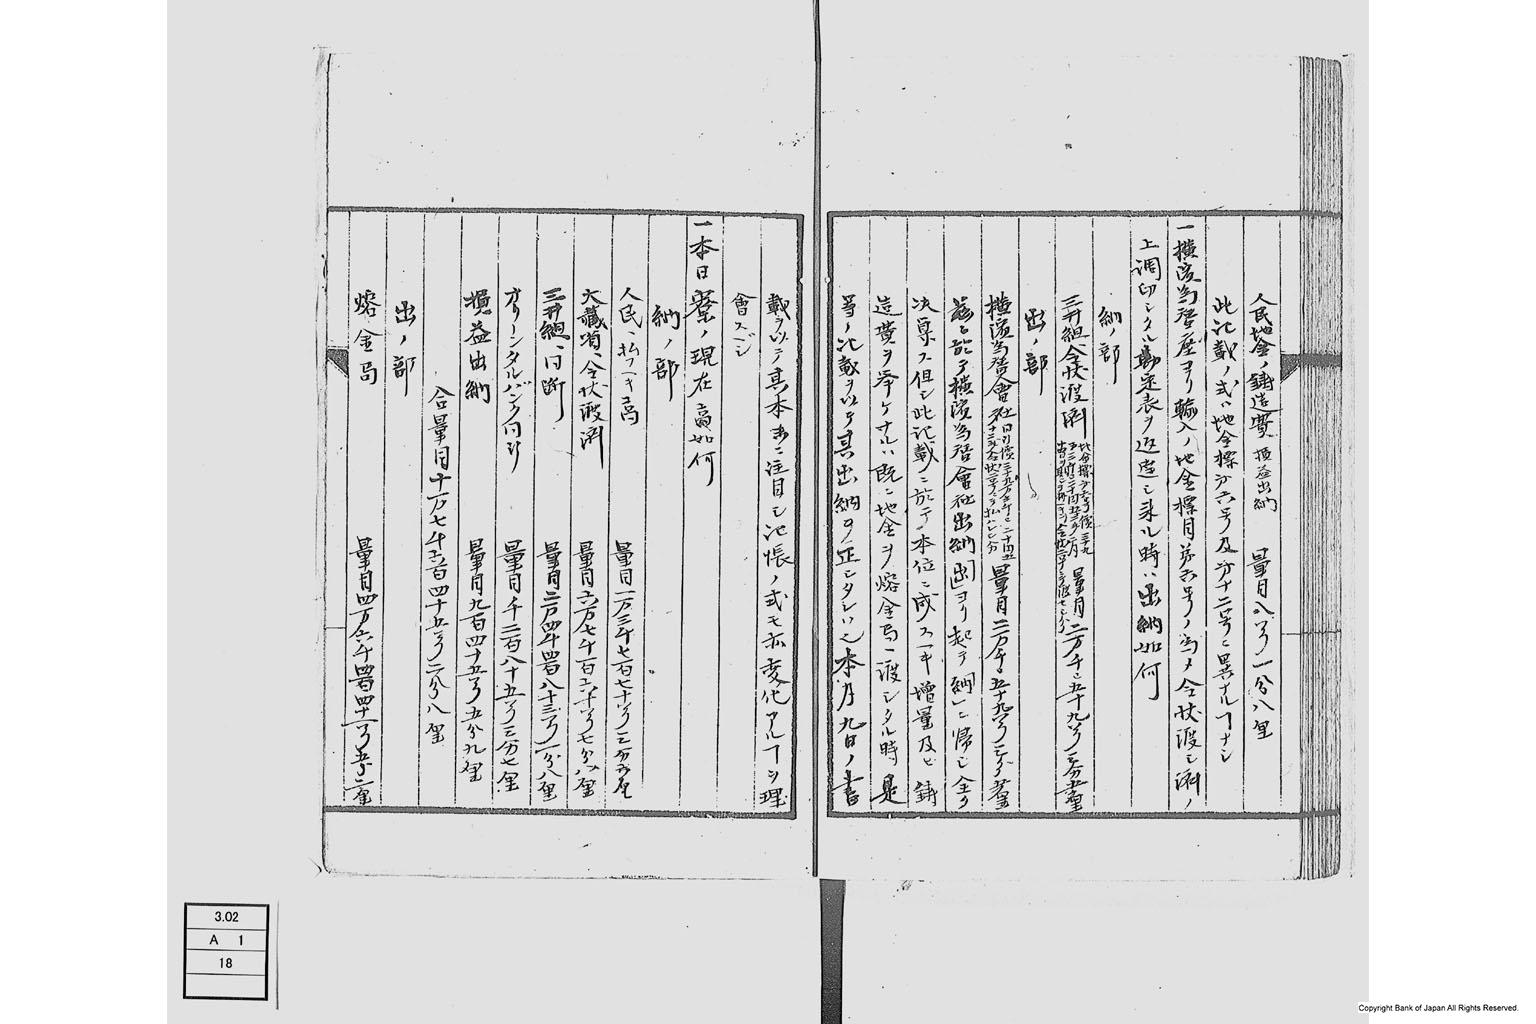 人民地金ノ鋳造費 損益出納 量目八匁一分八厘
此記載ノ式ハ地金標分六号及分十二号ニ異ナルヿナシ
一横浜為替座ヨリ輸入ノ地金標目第六号ノ為メ令状渡シ済ノ
上調印シタル 表ヲ返達シ来ル時ハ出納如何
納ノ部
三井組ヘ令状渡済 量目二万千〻五十九匁三分五厘
出ノ部
横濱為替會社 量目二万千〻五十九匁三分五厘
茲ニ於テ横濱為替會社出納「出」ヨリ起テ「納」ニ帰シ全ク
決算ス但シ此記載ニ於テ本位ニ成スヘキ増量及ヒ鋳
造費ヲ挙ケサルハ既ニ地金ヲ熔金局ヘ渡シタル時是
等ノ記載ヲ以テ其出納ヲ正シタレハ也本月九日ノ書
載ヲ以テ其本末ニ注目シ記帳ノ式モ亦変化アルヿヲ理
會スベシ
一本日 ノ現在高如何
納ノ部
人民ヘ払フヘキ高 量目一万三千七百七十匁三分 厘
大蔵省ヘ令状渡済 量目六万七千一百六十匁七分八厘
三井組ヘ同断 量目二万四千四百八十三匁一分八厘
オリーンタルバンク同断 量目千二百八十五匁三分七厘
損益出納 量目九百四十五匁五分九厘
合量目十万七千六百四十五匁二分八厘
出ノ部
熔金局 量目四万六千四百四十一匁五分二厘
3.02
A 1
18
Copyright Bank of Japan All Rights Reserved.